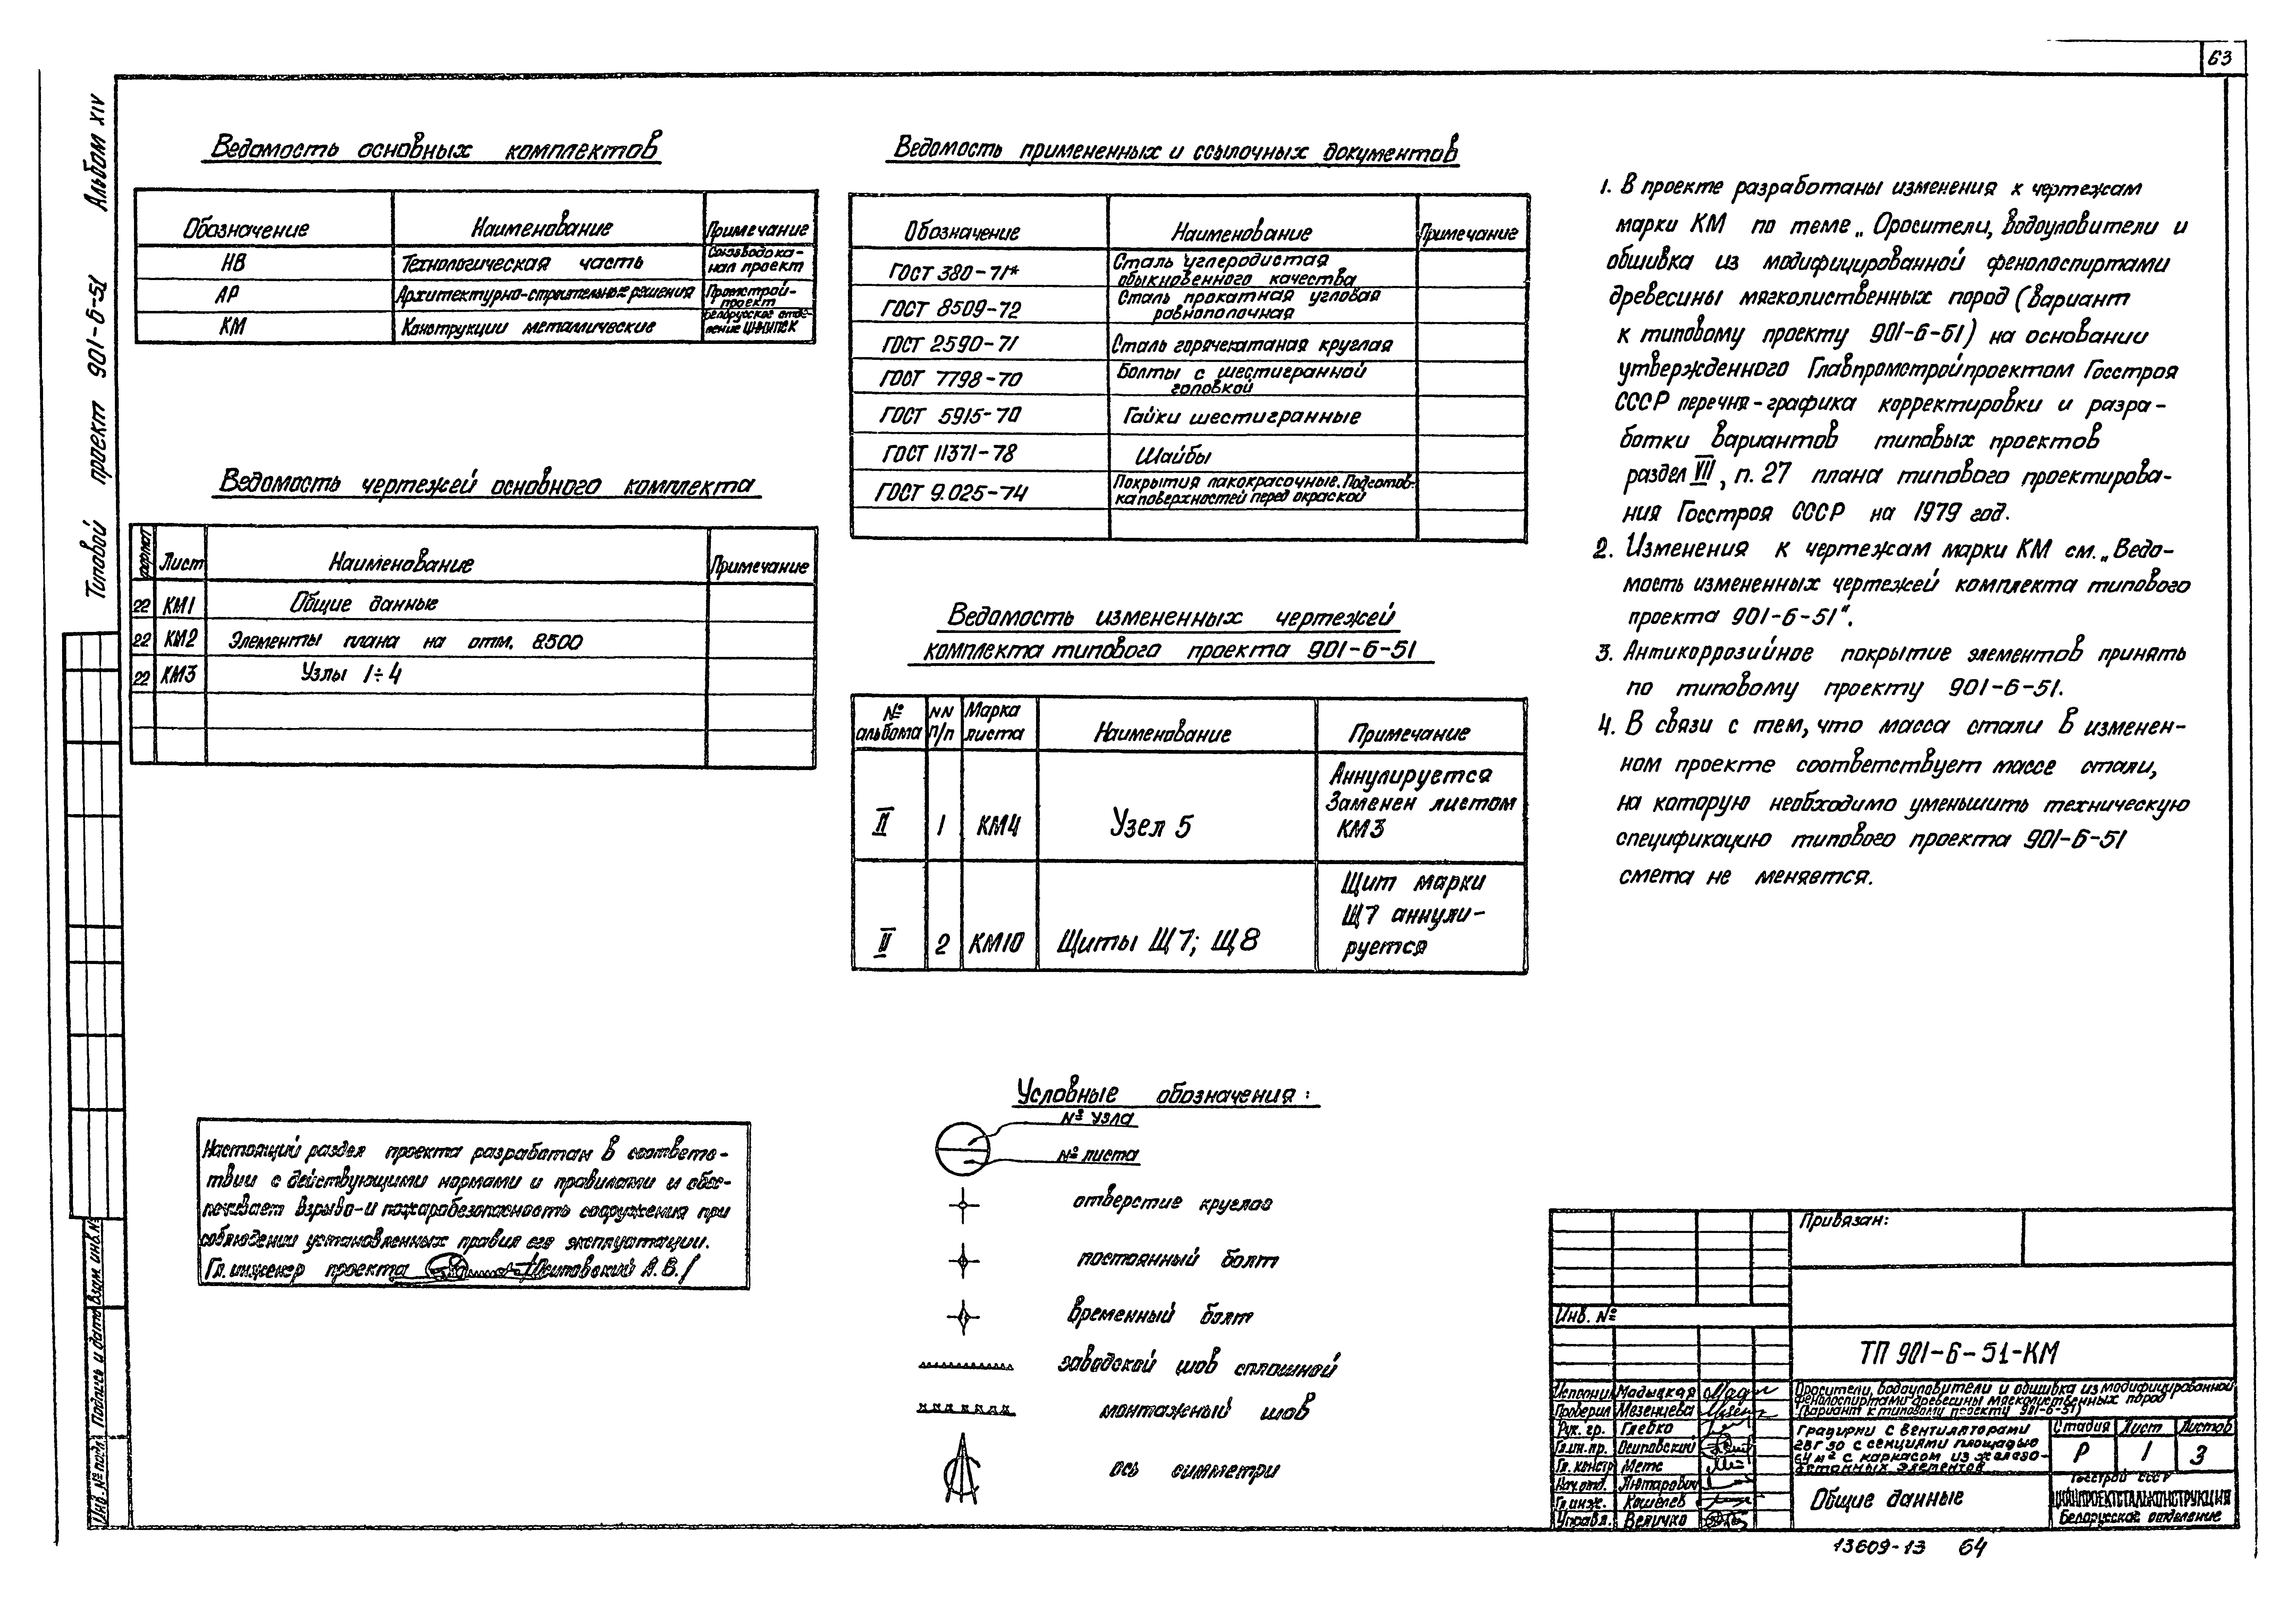 63
Альбом XIV
Типовой проект 901-6-51
Ведомость основных комплектов
Обозначение Наименование Примечание
НВ Технологическая часть Союзводока-
нал проект
АР Архитектурно-строительные решения Промстрой-
проект
КМ Конструкции металлические Белорусское отде-
ление ЦНИИПСК
Ведомость чертежей основного комплекта
формат Лист Наименование Примечание
22 КМ1 Общие данные
22 КМ2 Элементы плана на отм. 8.500
22 КМ3 Узлы 1÷4
Ведомость примененных и ссылочных документов
Обозначение Наименование Примечание
ГОСТ 380-71* Сталь углеродистая
обыкновенного качества
ГОСТ 8509-72 Сталь прокатная угловая
равнополочная
ГОСТ 2590-71 Сталь горячекатаная круглая
ГОСТ 7798-70 Болты с шестигранной
головкой
ГОСТ 5915-70 Гайки шестигранные
ГОСТ 11371-78 Шайбы
ГОСТ 9.025-74 Покрытия лакокрасочные. Подготов-
ка поверхностей перед окраской
Ведомость измененных чертежей
комплекта типового проекта 901-6-51
№ альбома NN п/п Марка листа Наименование Примечание
II 1 КМ4 Узел 5 Аннулируется
Заменен листом
КМ3
II 2 КМ10 Щиты Щ7; Щ8 Щит марки
Щ7 аннули-
руется
1. В проекте разработаны изменения к чертежам
марки КМ по теме „Оросители, водоуловители и
обшивка из модифицированной фенолоспиртами
древесины мягколиственных пород (вариант
к типовому проекту 901-6-51) на основании
утвержденного Главпромстройпроектом Госстроя
СССР перечня-графика корректировки и разра-
ботки вариантов типовых проектов
раздел VII, п. 27 плана типового проектирова-
ния Госстроя СССР на 1979 год.
2. Изменения к чертежам марки КМ см. „Ведо-
мость измененных чертежей комплекта типового
проекта 901-6-51".
3. Антикоррозийное покрытие элементов принять
по типовому проекту 901-6-51.
4. В связи с тем, что масса стали в изменен-
ном проекте соответствует массе стали,
на которую необходимо уменьшить техническую
спецификацию типового проекта 901-6-51
смета не меняется.
Настоящий раздел проекта разработан в соответс-
твии с действующими нормами и правилами и обес-
печивает взрыво-и пожаробезопасность сооружения при
соблюдении установленных правил его эксплуатации.
Гл. инженер проекта /Осиповский А.В./
Условные обозначения:
№ узла
№ листа
отверстие круглое
постоянный болт
временный болт
заводской шов сплошной
монтажный шов
ось симметри
Инв.№ подл. Подпись и дата Взам. инв.№
Привязан:
Инв. №
ТП 901-6-51-КМ
Исполнил Мадыцкая
Проверил Мезенцева
Рук. гр. Глебко
Гл.ин.пр. Осиповский
Гл. констр Метс
Нач.отд. Лютарович
Гл.инж. Кошелев
Управл. Величко
Оросители, водоуловители и обшивка из модифицированной
фенолоспиртами древесины мягколиственных пород
(вариант к типовому проекту 901-6-51)
Градирни с вентиляторами
2ВГ 50 с секциями площадью
64 м² с каркасом из железо-
бетонных элементов
Стадия Лист Листов
Р 1 3
Общие данные
Госстрой СССР
ЦНИИПРОЕКТСТАЛЬКОНСТРУКЦИЯ
Белорусское отделение
13609-13 64